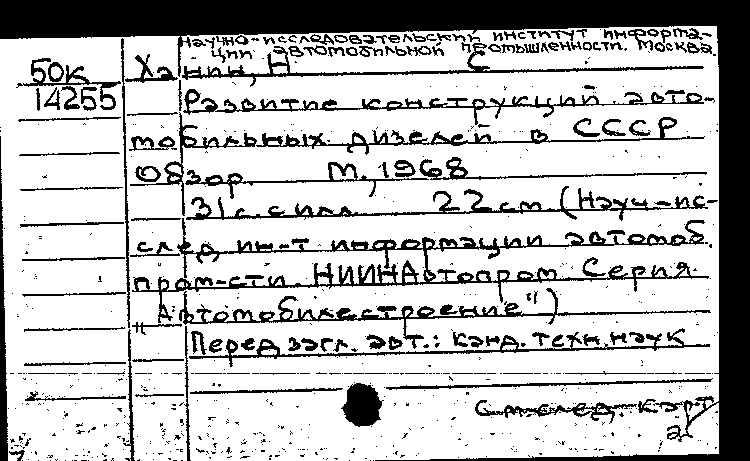 Научно-исследовательский институт информа-
ции автомобильной промышленности. Москва.
50к Ханин, Н С
14255 Развитие конструкций авто-
мобильных дизелей в СССР
Обзор. М., 1968.
31 с. с илл. 22 см. (Науч-ис-
след. ин-т информации автомоб.
пром-сти. НИИНАвтопром. Серия
„Автомобилестроение")
Перед загл. авт.: канд. техн. наук
См. след. карт
2